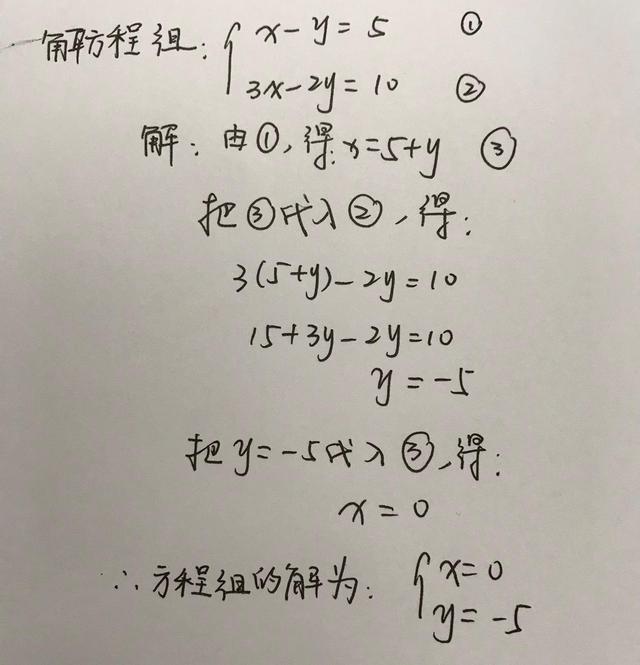 解方程组: { x-y=5 ①
3x-2y=10 ②
解: 由①, 得: x=5+y ③
把③代入②, 得:
3(5+y)-2y=10
15+3y-2y=10
y=-5
把y=-5代入③, 得:
x=0
∴方程组的解为: { x=0
y=-5